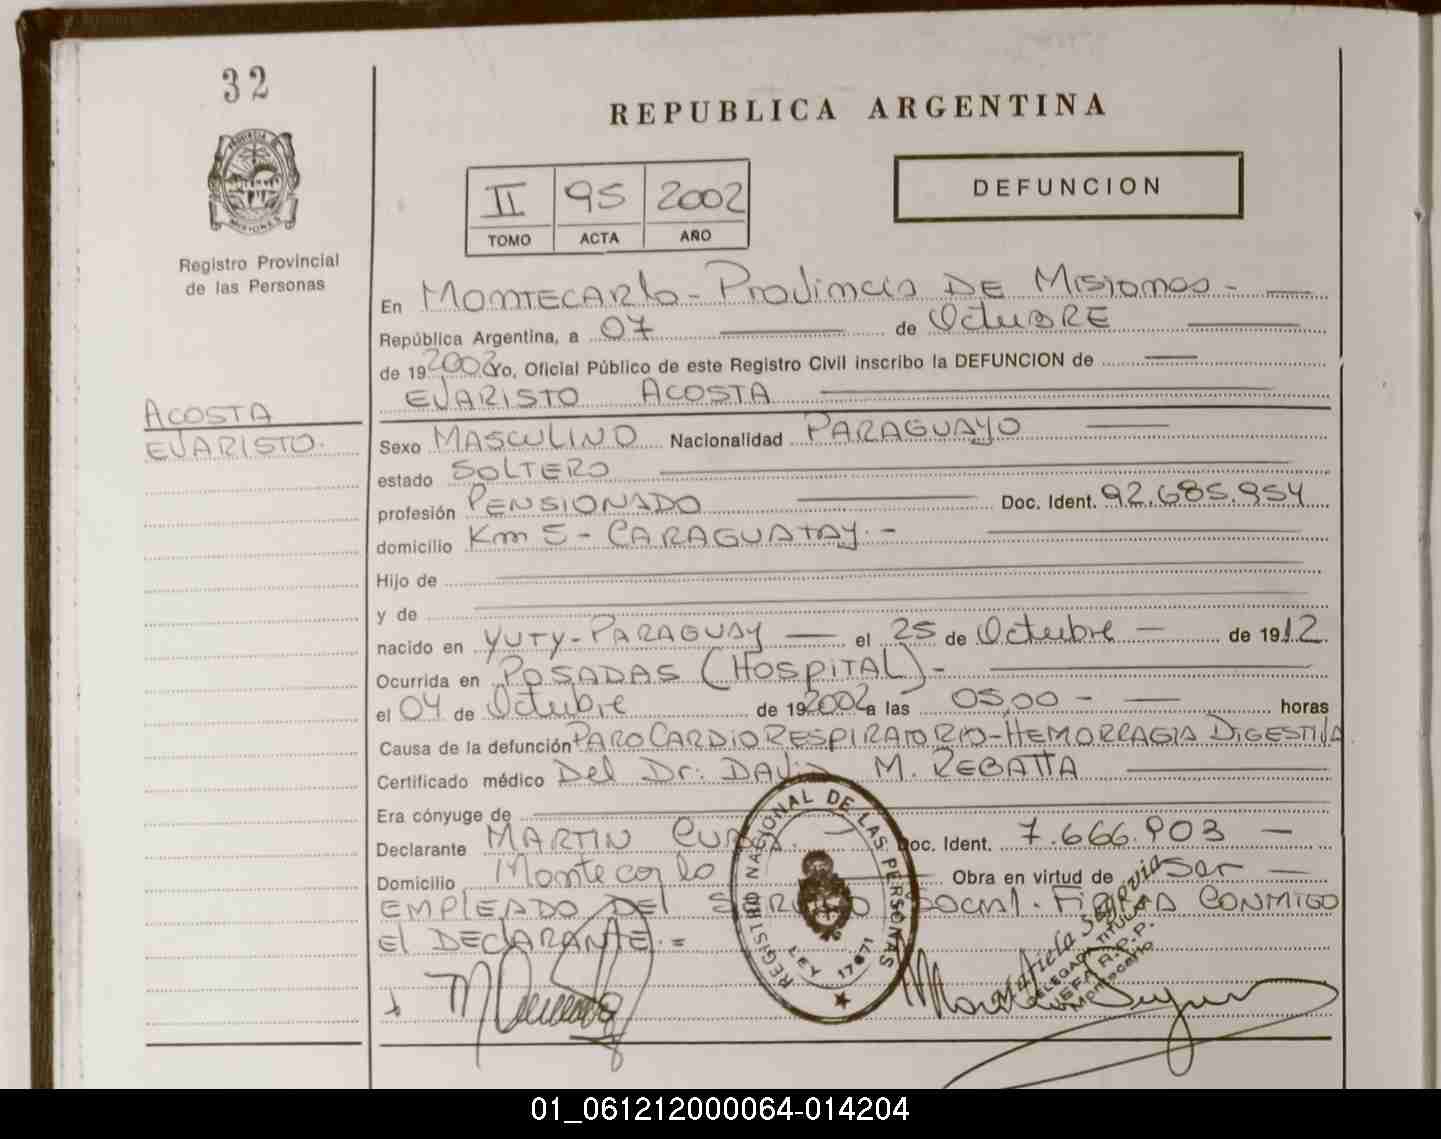 32
REPUBLICA ARGENTINA
PROVINCIA DE
MISIONES
Registro Provincial
de las Personas
II 95 2002
TOMO ACTA AÑO
DEFUNCION
En MONTECARLO - Provincia DE Misiones -
República Argentina, a 07 de Octubre
de 19 2002 yo, Oficial Público de este Registro Civil inscribo la DEFUNCION de
EVARISTO ACOSTA
ACOSTA
EVARISTO.
Sexo MASCULINO Nacionalidad PARAGUAYO
estado SOLTERO
profesión PENSIONADO Doc. Ident. 92.685.954
domicilio Km 5 - CARAGUATAY. -
Hijo de
y de
nacido en YUTY - PARAGUAY el 25 de Octubre - de 1912.
Ocurrida en POSADAS (HOSPITAL) -
el 04 de Octubre de 19 2002 a las 05,00 - horas
Causa de la defunción PARO CARDIO RESPIRATORIO - HEMORRAGIA DIGESTIVA
Certificado médico Del Dr. DAVID M. REBATTA
Era cónyuge de
Declarante MARTIN Doc. Ident. 7.666.903 -
Domicilio Montecarlo Obra en virtud de Ser -
EMPLEADO DEL SERVICIO SOCIAL. FIRMA CONMIGO
El DECLARANTE. =
REGISTRO NACIONAL DE LAS PERSONAS
LEY 17671
Mariela Segovia
DELEGADA TITULAR
JEFA R.P.P.
Montecarlo
01_061212000064-014204